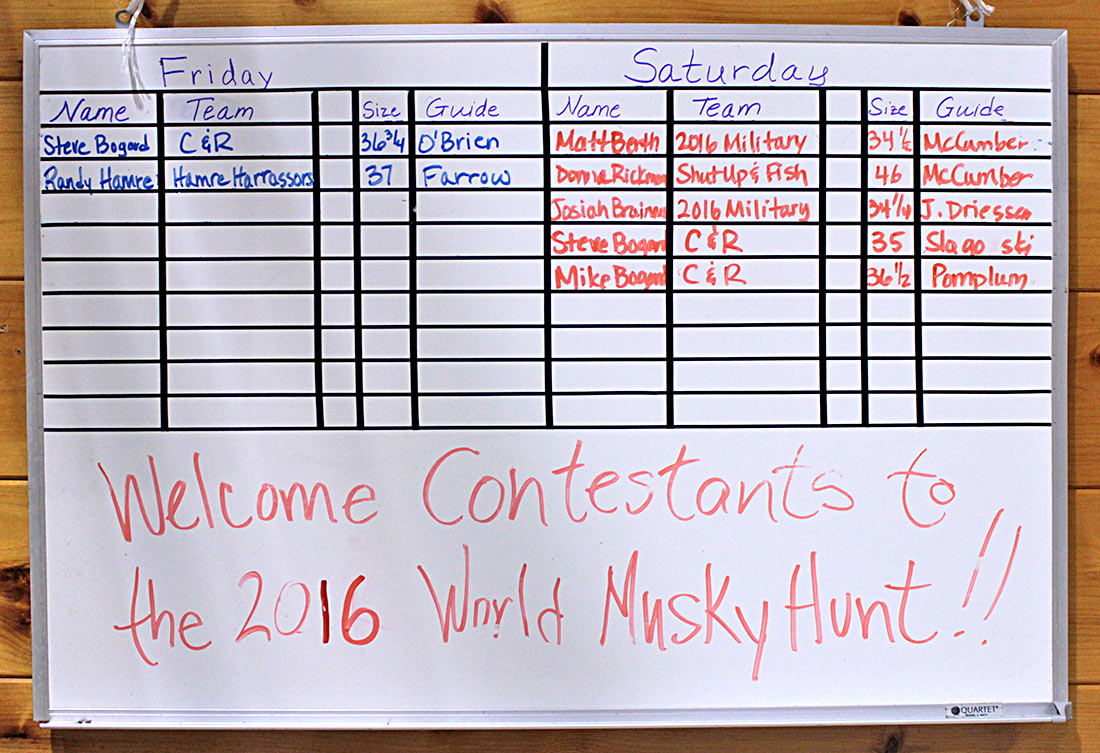 Friday Saturday
Name Team Size Guide Name Team Size Guide
Steve Bogard C&R 36 3/4 O'Brien Matt Berth 2016 Military 34 1/2 McCumber
Randy Hamre Hamre Harrassors 37 Farrow Donna Rickman Shut Up & Fish 46 McCumber
Josiah 2016 Military 34 1/4 J. Driessen
Steve Bogard C&R 35 Slago ski
Mike Bogard C&R 36 1/2 Pomplum
Welcome Contestants to
the 2016 World Musky Hunt!!
QUARTET